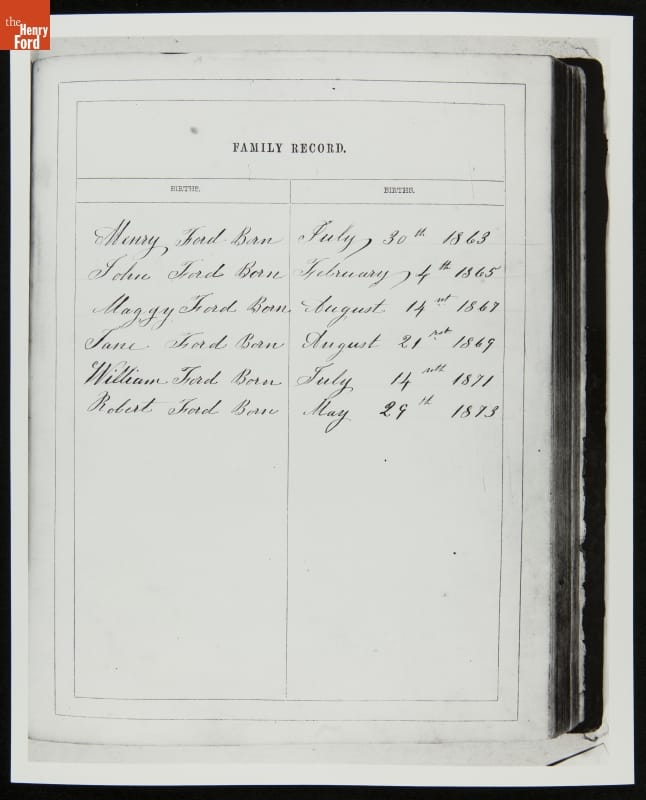 the
Henry
Ford
FAMILY RECORD.
BIRTHS. BIRTHS.
Henry Ford Born July, 30th 1863
John Ford Born February, 4th 1865
Maggy Ford Born August 14 1867
Jane Ford Born August 21 1869
William Ford Born July 14 1871
Robert Ford Born May 29th 1873